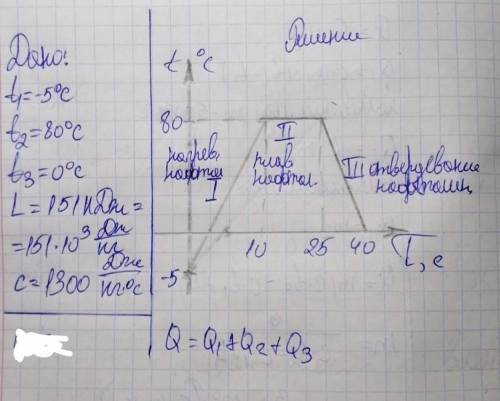 Дано:
t₁=-5°C
t₂=80°C
t₃=0°C
L=151кДж=
=151·10³ Дж/кг
c=1300 Дж/кг·°C
Решение
t °C
80
нагрев.
нафтал
I
II
плав
нафтал.
III отвердевание
нафталин.
10
25
40
T, c
-5
Q=Q₁+Q₂+Q₃